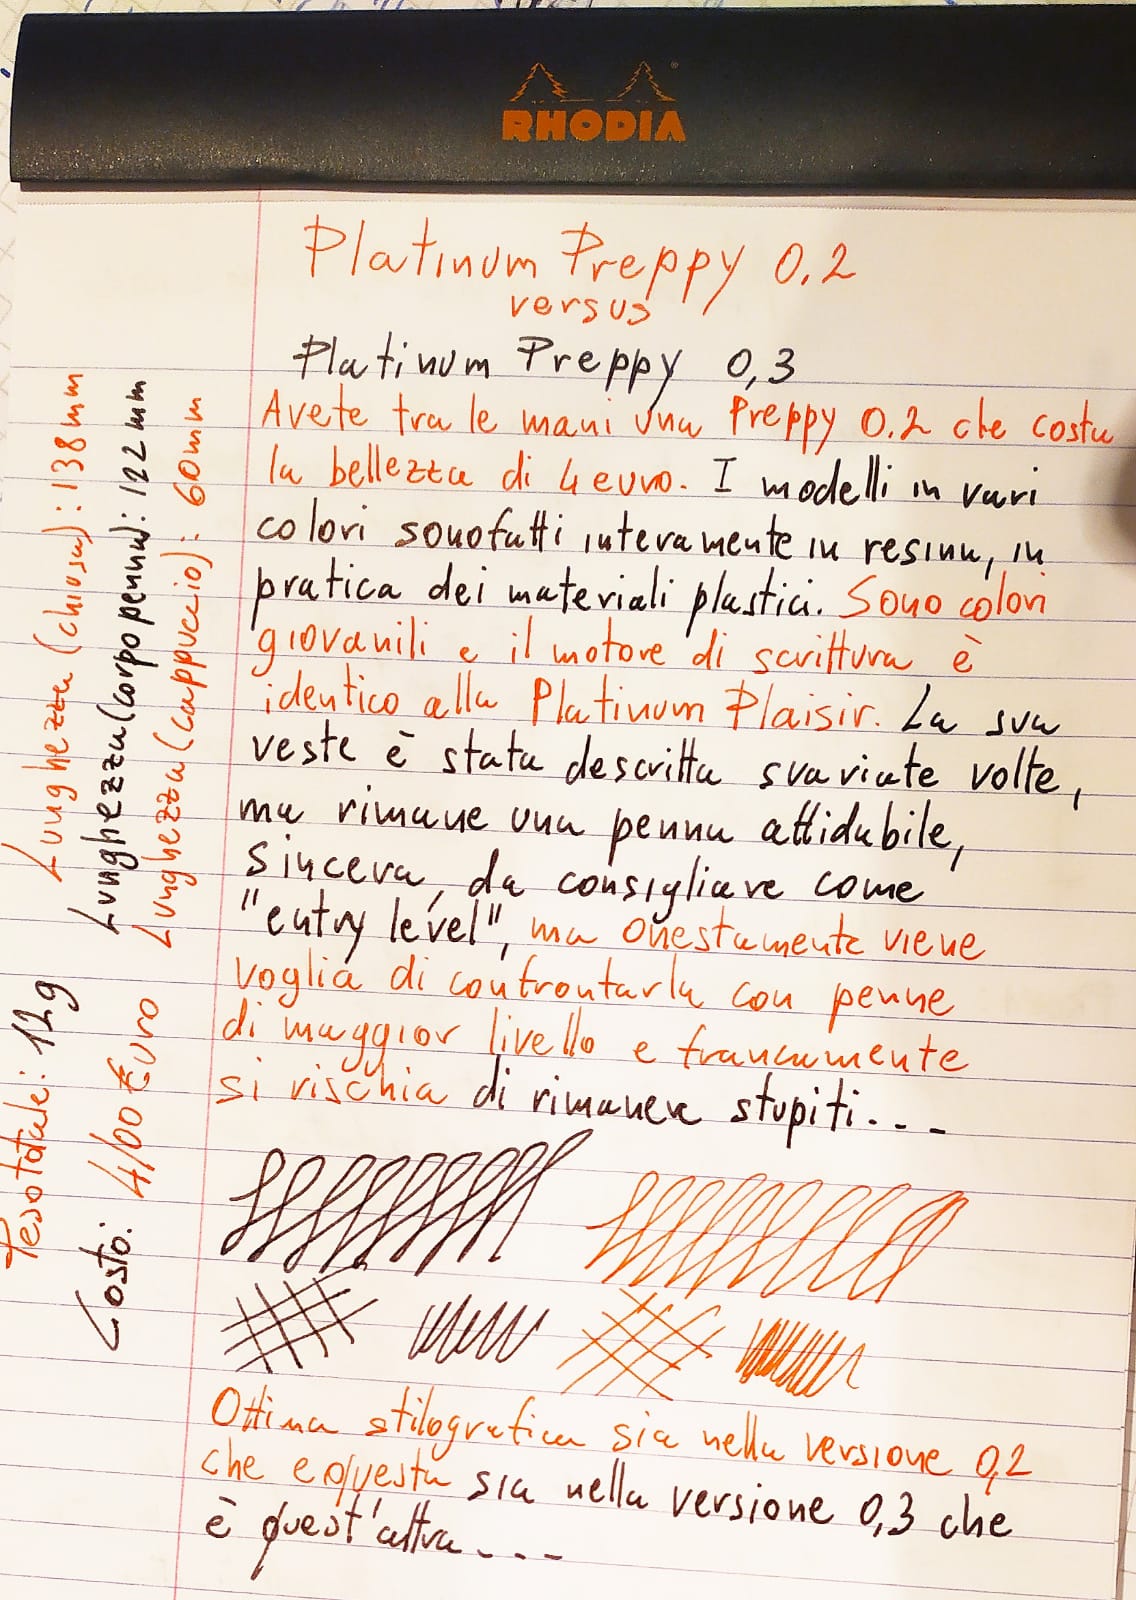 RHODIA
Platinum Preppy 0.2
versus
Platinum Preppy 0,3
Avete tra le mani una Preppy 0.2 che costa
la bellezza di 4 euro. I modelli in vari
colori sono fatti interamente in resina, in
pratica dei materiali plastici. Sono colori
giovanili e il motore di scrittura è
identico alla Platinum Plaisir. La sua
veste è stata descritta svariate volte,
ma rimane una penna affidabile,
sincera, da consigliare come
"entry level", ma onestamente viene
voglia di confrontarla con penne
di maggior livello e francamente
si rischia di rimanere stupiti...
Ottima stilografica sia nella versione 0,2
che è questa sia nella versione 0,3 che
è quest'altra...
Lunghezza (chiusa): 138mm
Lunghezza (corpo penna): 122mm
Lunghezza (cappuccio): 60mm
Peso totale: 12g
Costo: 4,00 Euro